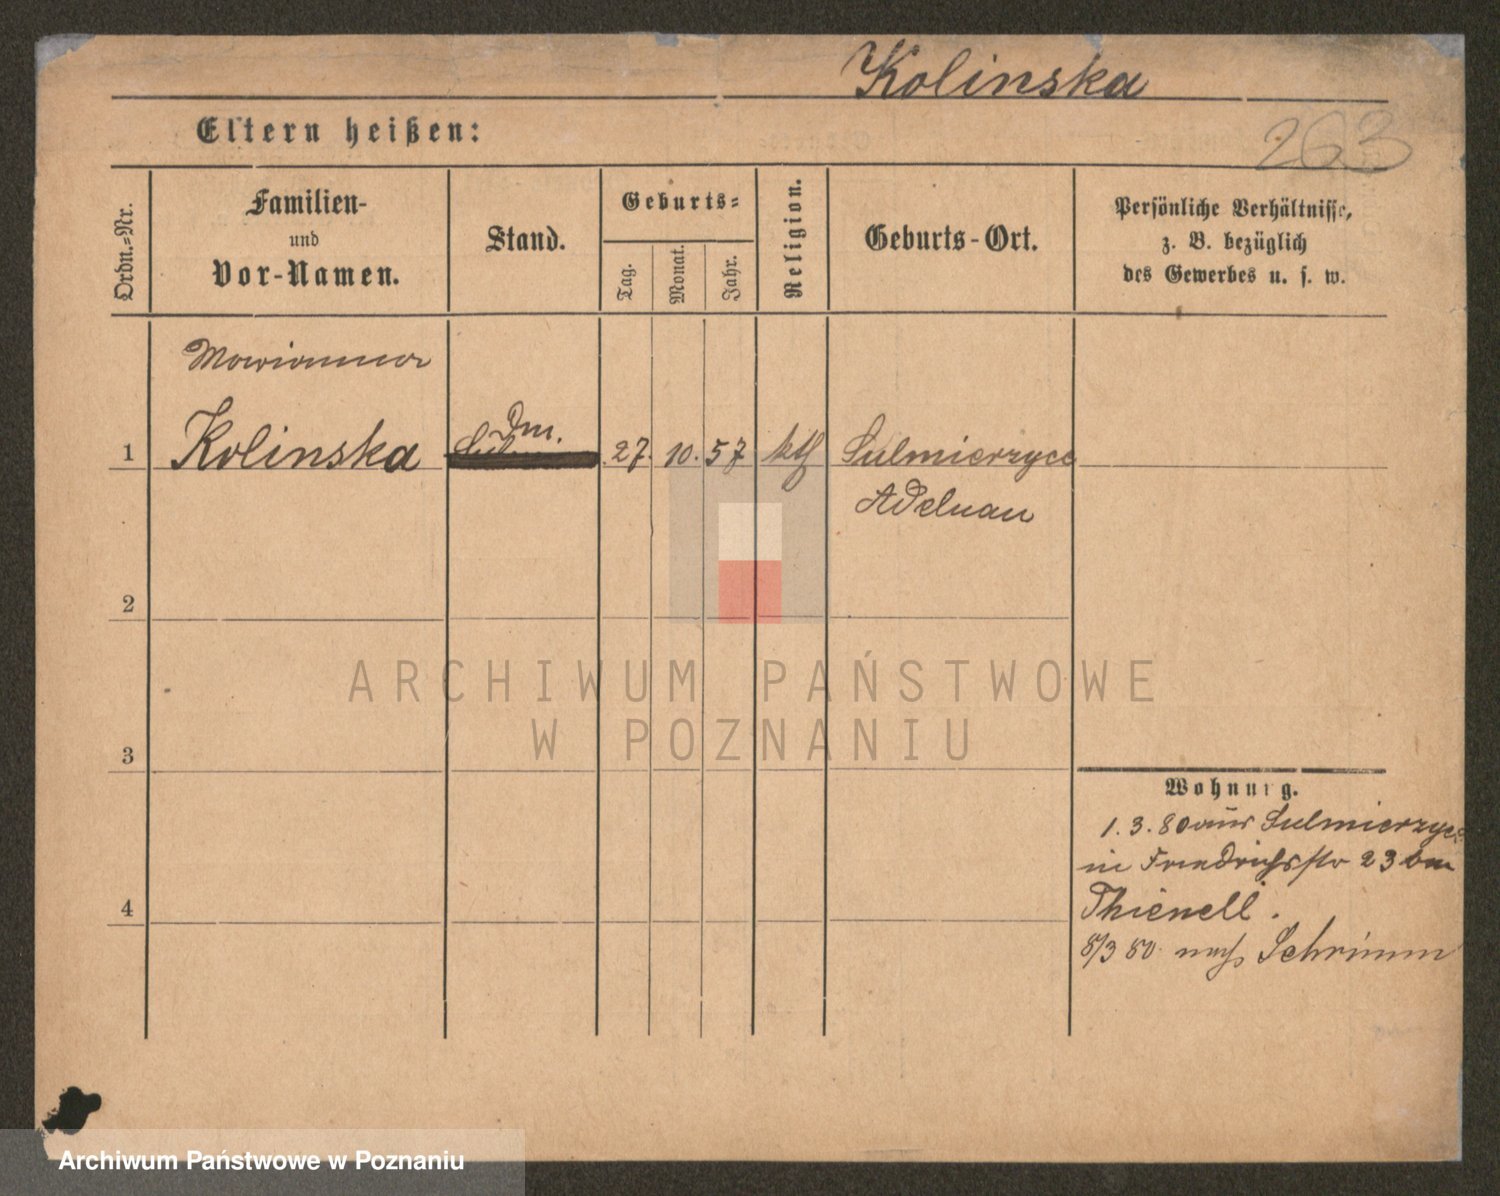 Kolinska
263
Eltern heißen:
Ordn.=Nr.
Familien-
und
Vor-Namen.
Stand.
Geburts=
Tag.
Monat.
Jahr.
Religion.
Geburts-Ort.
Persönliche Verhältnisse,
z. B. bezüglich
des Gewerbes u. s. w.
Marianna
1 Kolinska Dm. 27. 10. 57 kth Sulmierzyce
Adelnau
2
3
4
Wohnung.
1. 3. 80 aus Sulmierzyce
in Friedrichsstr 23 bei
Thienell.
8/3 80 nach Schrimm
ARCHIWUM PAŃSTWOWE
W POZNANIU
Archiwum Państwowe w Poznaniu